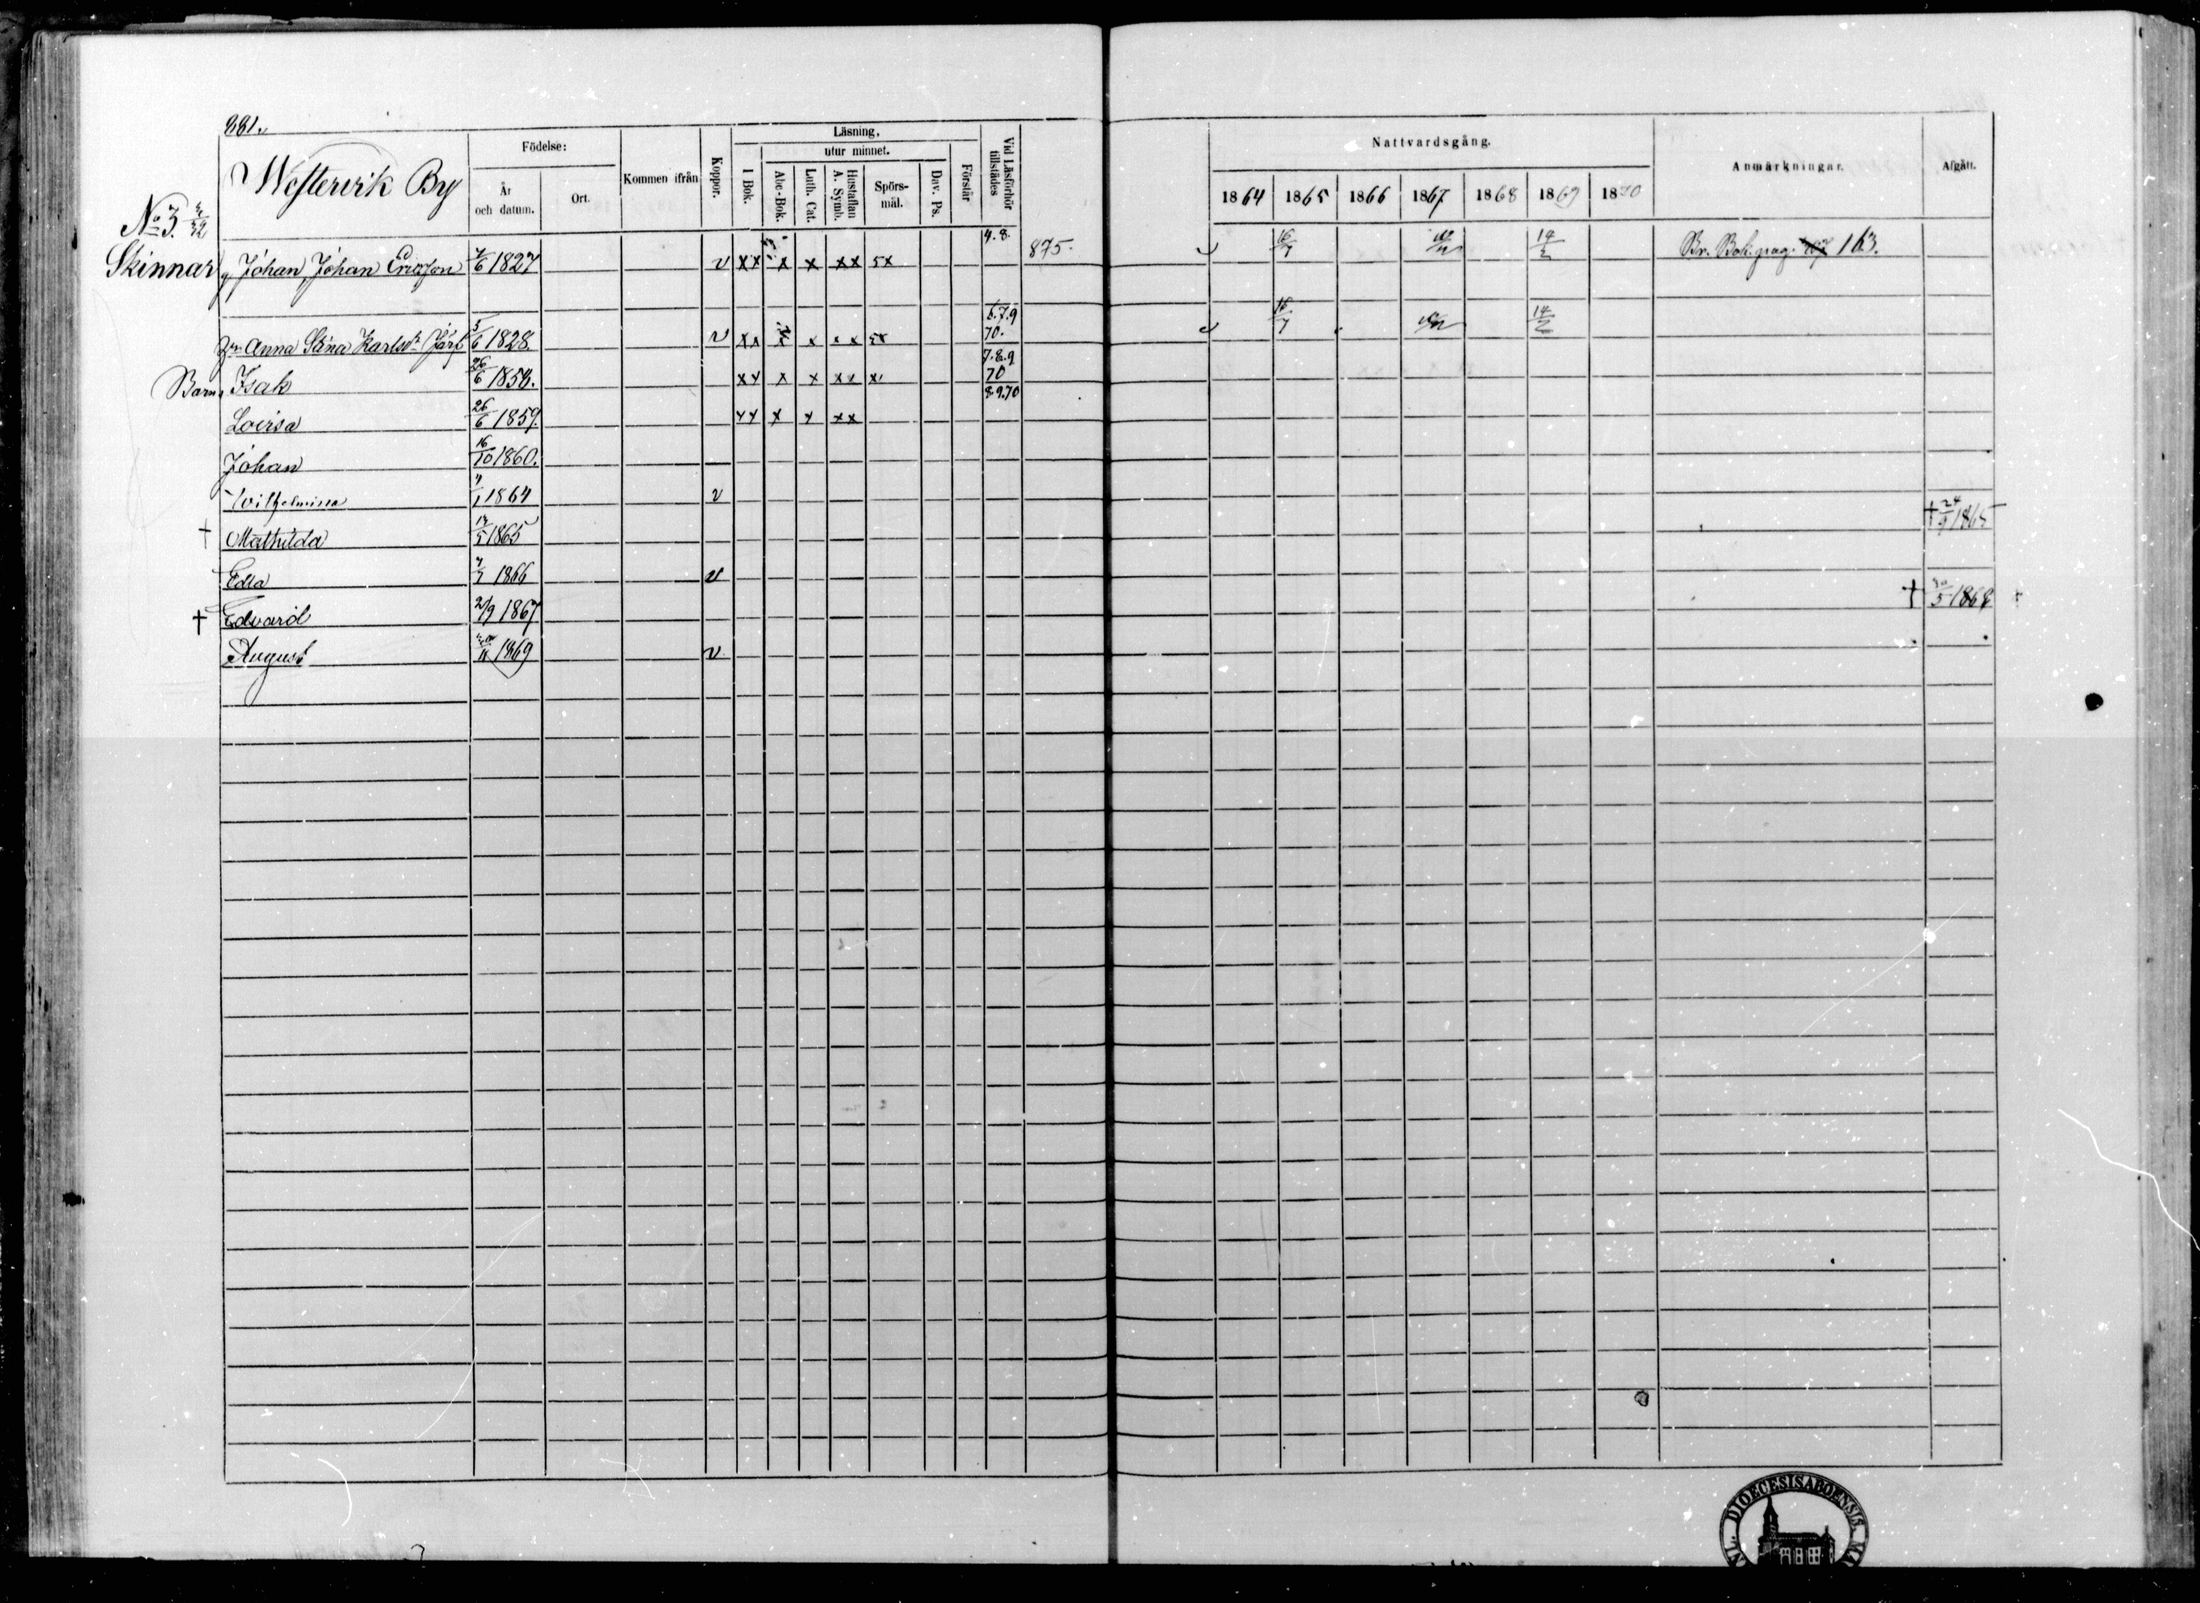 881.
Westervik By
Födelse:
År och datum.
Ort.
Kommen ifrån
Koppor.
Läsning,
I Bok.
utur minnet.
Abc-Bok.
Luth. Cat.
Hustaflan A. Symb.
Spörsmål.
Dav. Ps.
Förstår
Vid Läsförhör tillstädes
Nattvardsgång.
1864 1865 1866 1867 1868 1869 1870
Anmärkningar.
Afgått.
No 3.
Skinnar
Johan Johan Ericsson 1827 v xx x x xx 5x 4.8. 875. 16/7 14/2 Br. Bok. pag. 163.
Anna Karlsdr 5/6 1828. v xx x x x 5x 6.7.9 70. 16/7 14/2
Barn, Isak 26/6 xx x x xx x 7.8.9 70
Lovisa 26/6 1859. xx x x xx 8.9.70
Johan 16/10 1860.
Wilhelmina 1864 v
† Mathilda 1865 † 24/9 1865
Edla 1866 v
† Edvard 2/9 1867 † 1868
August 1869 v
DIOECESIS ABOENSIS